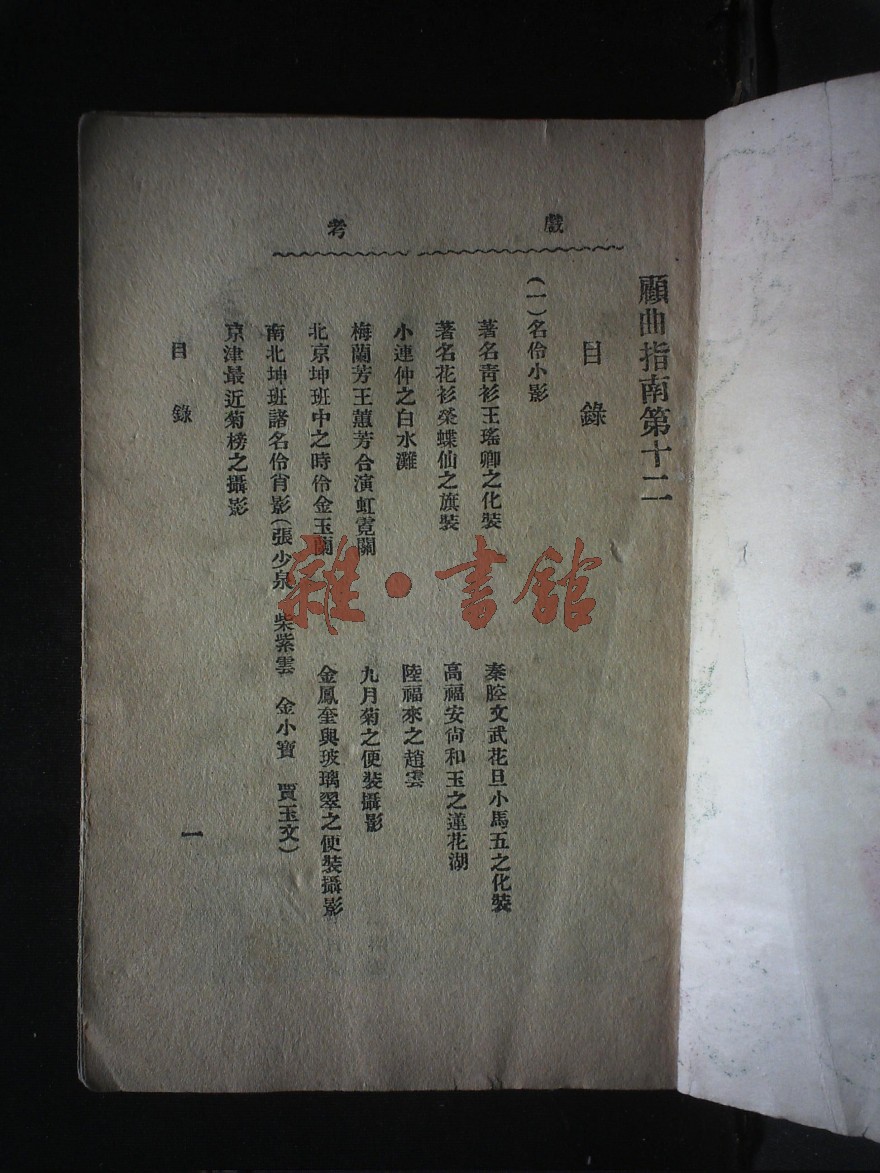 戲考
顧曲指南第十二
目錄
(一)名伶小影
著名青衫王瑤卿之化裝
秦腔文武花旦小馬五之化裝
著名花衫榮蝶仙之旗裝
高福安尙和玉之蓮花湖
小連仲之白水灘
陸福來之趙雲
梅蘭芳王蕙芳合演虹霓關
九月菊之便裝攝影
北京坤班中之時伶金玉蘭
金鳳奎與玻璃翠之便裝攝影
南北坤班諸名伶肖影(張少泉 柴紫雲 金小寶 賈玉文)
京津最近菊榜之攝影
目錄
一
雜·書館